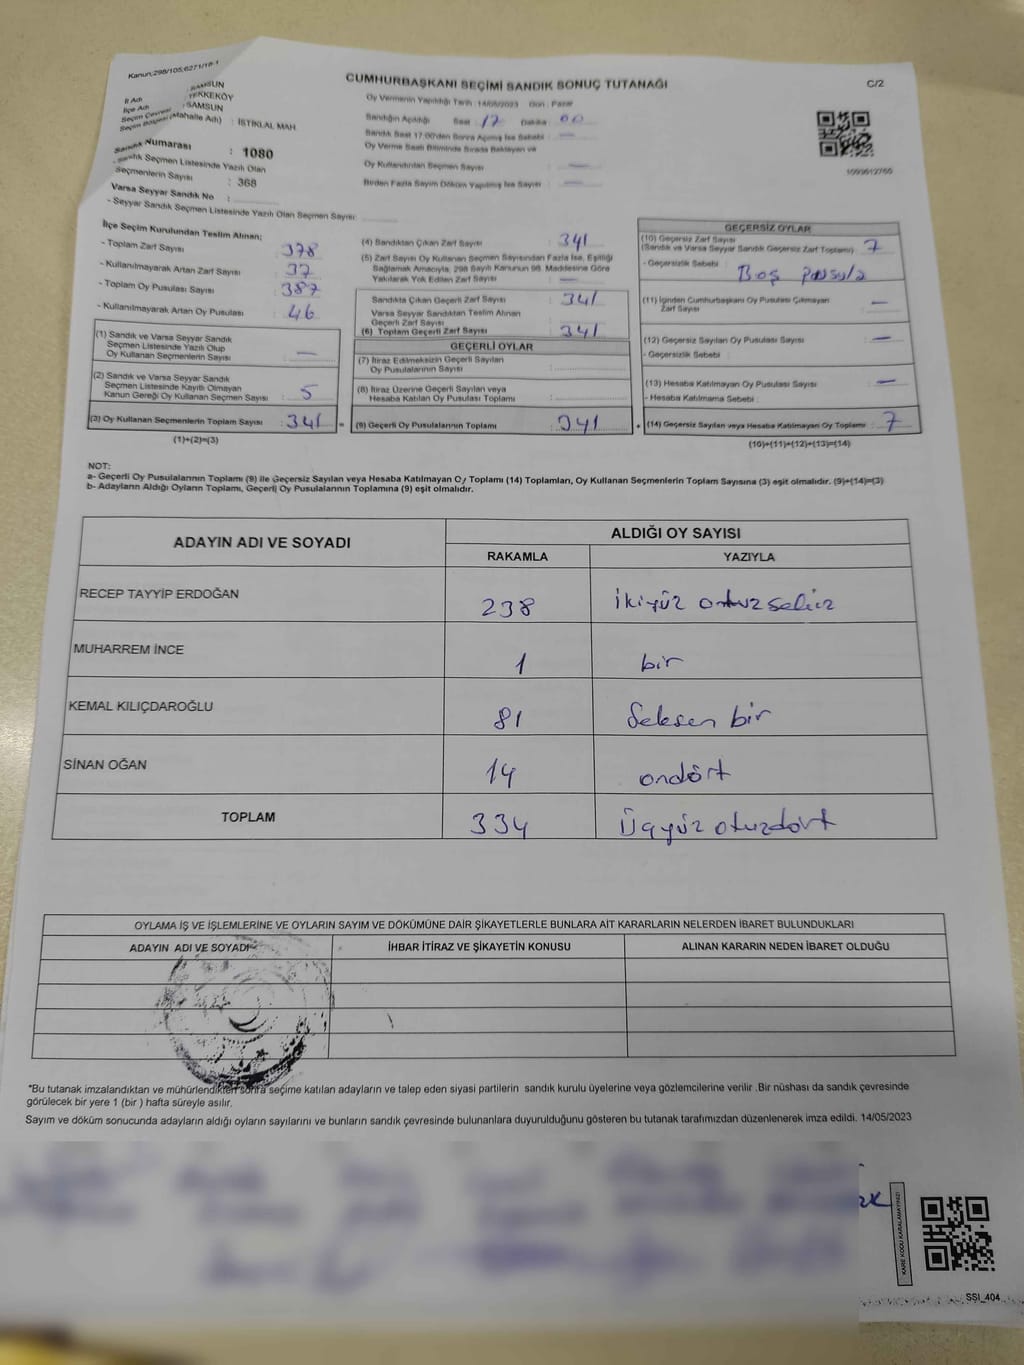 Kanun;298/105;6271/18-1
CUMHURBAŞKANI SEÇİMİ SANDIK SONUÇ TUTANAĞI
C/2
İl Adı : SAMSUN
İlçe Adı : TEKKEKÖY
Seçim Çevresi : SAMSUN
Seçim Bölgesi (Mahalle Adı) : İSTİKLAL MAH.
Sandık Numarası : 1080
- Sandık Seçmen Listesinde Yazılı Olan
Seçmenlerin Sayısı : 368
Varsa Seyyar Sandık No :
- Seyyar Sandık Seçmen Listesinde Yazılı Olan Seçmen Sayısı:
Oy Vermenin Yapıldığı Tarih : 14/05/2023 Gün : Pazar
Sandığın Açıldığı Saat : 17 Dakika : 00
Sandık Saat 17:00'den Sonra Açılmış İse Sebebi : —
Oy Verme Saati Bitiminde Sırada Bekleyen ve
Oy Kullandırılan Seçmen Sayısı : —
Birden Fazla Sayım Döküm Yapılmış İse Sayısı : —
1099612760
İlçe Seçim Kurulundan Teslim Alınan;
- Toplam Zarf Sayısı : 378
- Kullanılmayarak Artan Zarf Sayısı : 37
- Toplam Oy Pusulası Sayısı : 387
- Kullanılmayarak Artan Oy Pusulası : 46
(1) Sandık ve Varsa Seyyar Sandık
Seçmen Listesinde Yazılı Olup
Oy Kullanan Seçmenlerin Sayısı : —
(2) Sandık ve Varsa Seyyar Sandık
Seçmen Listesinde Kayıtlı Olmayan
Kanun Gereği Oy Kullanan Seçmen Sayısı : 5
(3) Oy Kullanan Seçmenlerin Toplam Sayısı : 341
(1)+(2)=(3)
(4) Sandıktan Çıkan Zarf Sayısı : 341
(5) Zarf Sayısı Oy Kullanan Seçmen Sayısından Fazla İse, Eşitliği
Sağlamak Amacıyla, 298 Sayılı Kanunun 98. Maddesine Göre
Yakılarak Yok Edilen Zarf Sayısı : —
Sandıkta Çıkan Geçerli Zarf Sayısı : 341
Varsa Seyyar Sandıktan Teslim Alınan
Geçerli Zarf Sayısı
(6) Toplam Geçerli Zarf Sayısı : 341
GEÇERLİ OYLAR
(7) İtiraz Edilmeksizin Geçerli Sayılan
Oy Pusulalarının Sayısı :
(8) İtiraz Üzerine Geçerli Sayılan veya
Hesaba Katılan Oy Pusulası Toplamı :
= (9) Geçerli Oy Pusulalarının Toplamı : 341
GEÇERSİZ OYLAR
(10) Geçersiz Zarf Sayısı
(Sandık ve Varsa Seyyar Sandık Geçersiz Zarf Toplamı) : 7
- Geçersizlik Sebebi : Boş pusula
(11) İçinden Cumhurbaşkanı Oy Pusulası Çıkmayan
Zarf Sayısı : —
(12) Geçersiz Sayılan Oy Pusulası Sayısı : —
- Geçersizlik Sebebi :
(13) Hesaba Katılmayan Oy Pusulası Sayısı : —
- Hesaba Katılmama Sebebi :
+ (14) Geçersiz Sayılan veya Hesaba Katılmayan Oy Toplamı : 7
(10)+(11)+(12)+(13)=(14)
NOT:
a- Geçerli Oy Pusulalarının Toplamı (9) ile Geçersiz Sayılan veya Hesaba Katılmayan Oy Toplamı (14) Toplamları, Oy Kullanan Seçmenlerin Toplam Sayısına (3) eşit olmalıdır. (9)+(14)=(3)
b- Adayların Aldığı Oyların Toplamı, Geçerli Oy Pusulalarının Toplamına (9) eşit olmalıdır.
ADAYIN ADI VE SOYADI
ALDIĞI OY SAYISI
RAKAMLA YAZIYLA
RECEP TAYYİP ERDOĞAN 238 ikiyüz otuzsekiz
MUHARREM İNCE 1 bir
KEMAL KILIÇDAROĞLU 81 Seksen bir
SİNAN OĞAN 14 ondört
TOPLAM 334 Üçyüz otuzdört
OYLAMA İŞ VE İŞLEMLERİNE VE OYLARIN SAYIM VE DÖKÜMÜNE DAİR ŞİKAYETLERLE BUNLARA AİT KARARLARIN NELERDEN İBARET BULUNDUKLARI
ADAYIN ADI VE SOYADI İHBAR İTİRAZ VE ŞİKAYETİN KONUSU ALINAN KARARIN NEDEN İBARET OLDUĞU
*Bu tutanak imzalandıktan ve mühürlendikten sonra seçime katılan adayların ve talep eden siyasi partilerin sandık kurulu üyelerine veya gözlemcilerine verilir .Bir nüshası da sandık çevresinde
görülecek bir yere 1 (bir ) hafta süreyle asılır.
Sayım ve döküm sonucunda adayların aldığı oyların sayılarını ve bunların sandık çevresinde bulunanlara duyurulduğunu gösteren bu tutanak tarafımızdan düzenlenerek imza edildi. 14/05/2023
KARE KODU KARALAMAYINIZ!
SSI_404